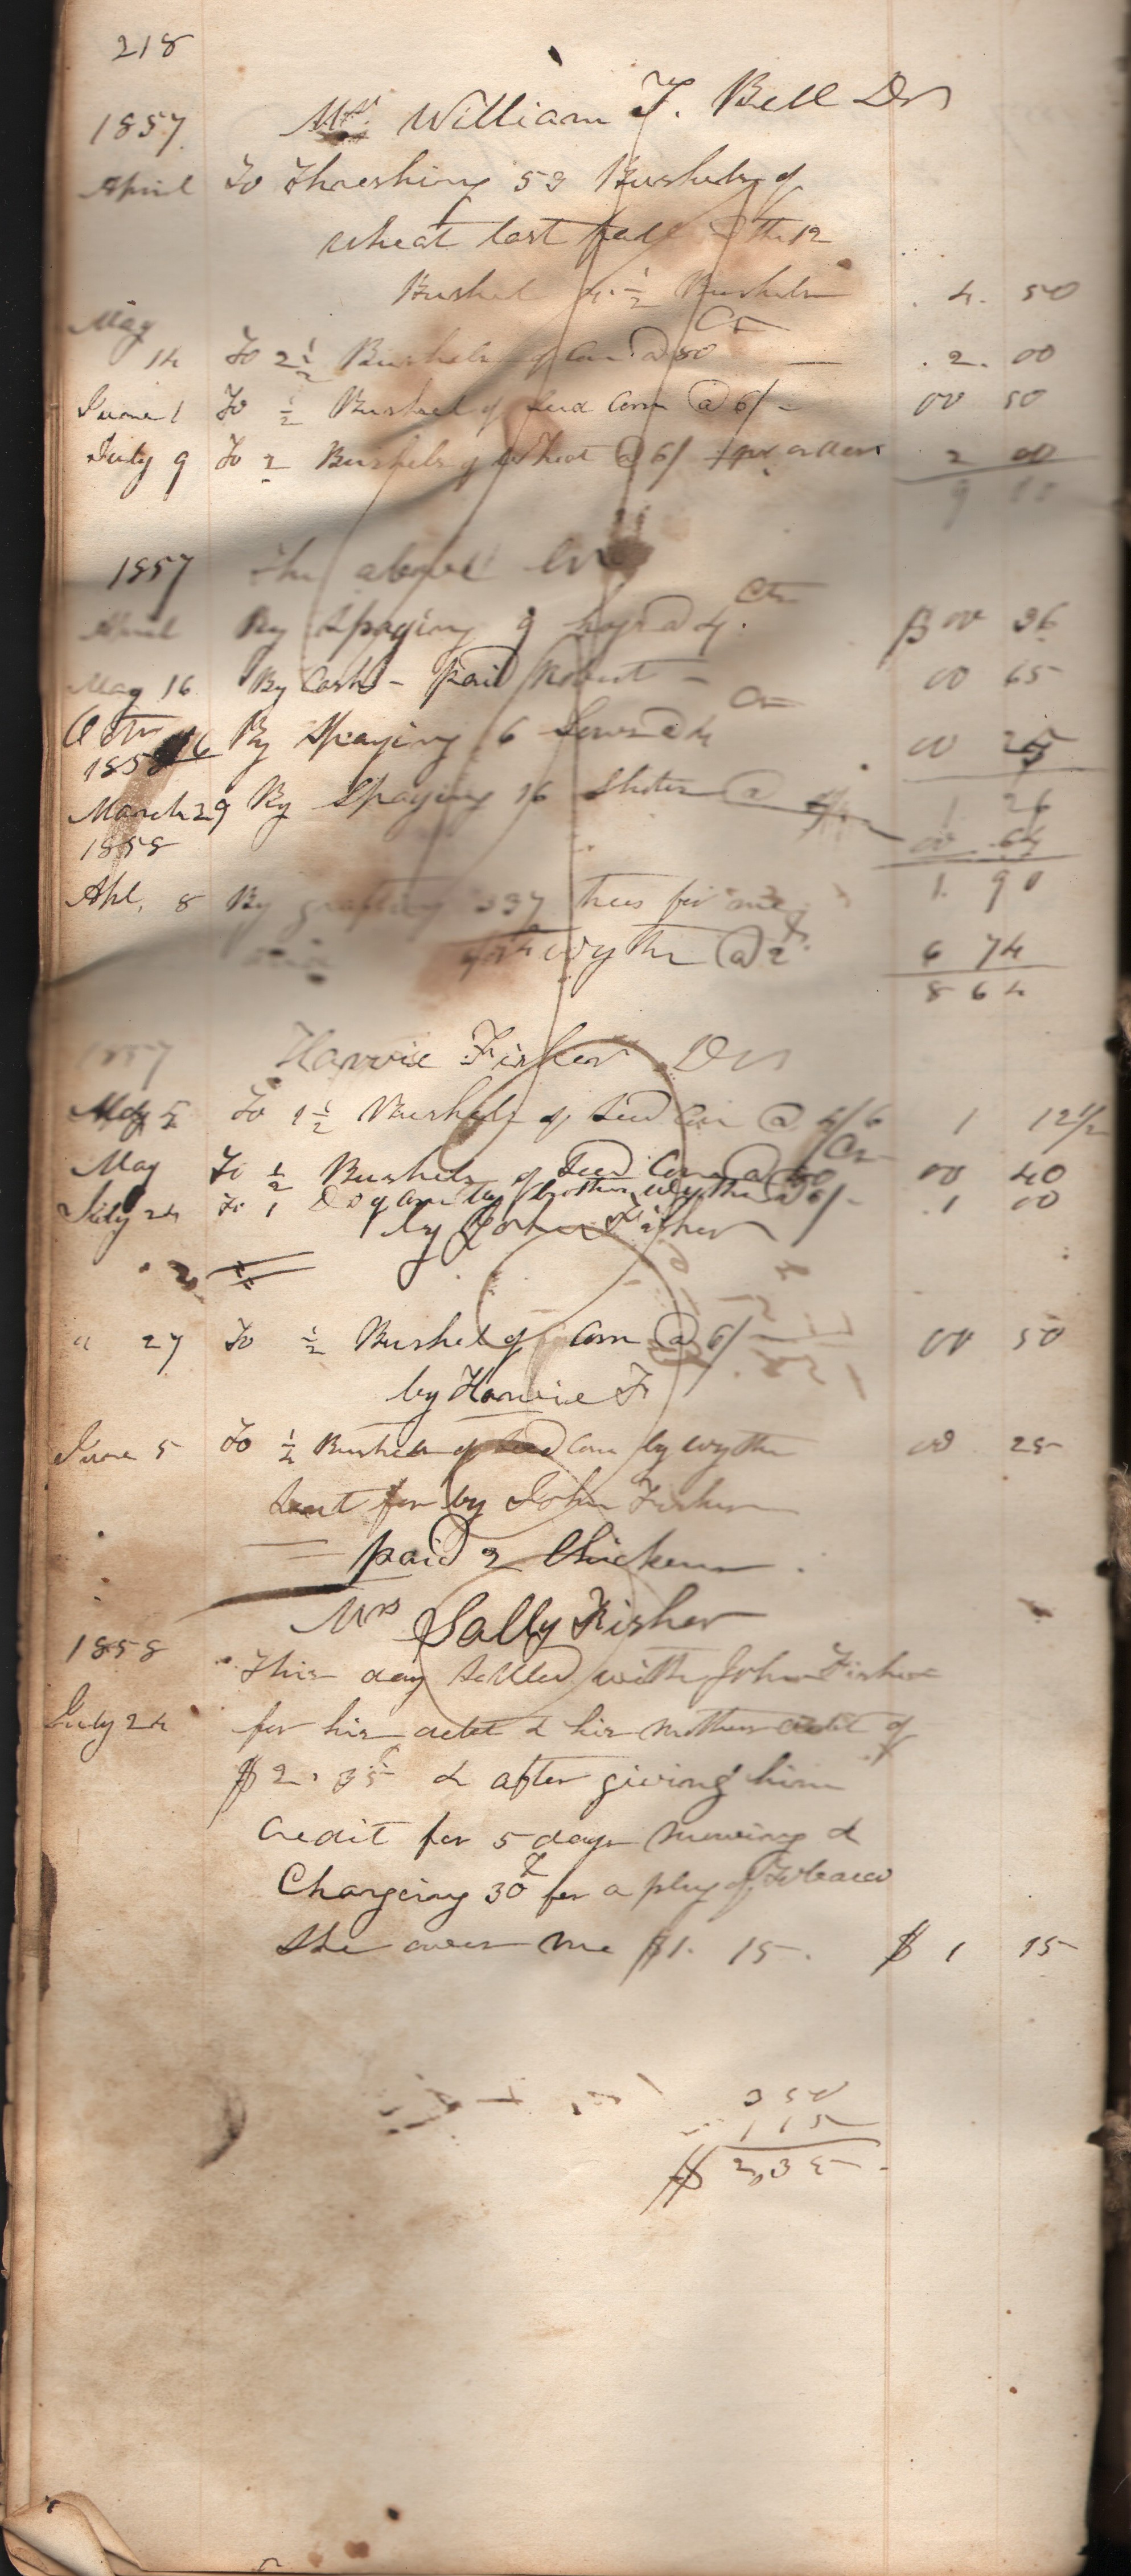 218
1857. Mr. William T. Bell Dr
April To Threshing 53 Bushels of
wheat last fall @ the 12
Bushel 4 1/2 Bushels 4. 50
May
14 To 2 1/2 Bushels of Corn @ 80 Cts 2. 00
June 1 To 1/2 Bushel of Corn @ 6/- 00 50
July 9 To 2 Bushels of wheat @ 6/ 2 00
9 00
1857 The above Cr
April By Spaying 9 hogs @ 4 Cts. $ 00 36
May 16 By Cash - paid Robert - 00 65
16 By Spaying 6 Sows @ 4 Cts 00 25
1 26
1858
March 29 By Spaying 16 Shotes @ 00 64
1. 90
1858
Apl. 8 By grafting 337 trees for me
Wythe @ 2 6 74
8 64
1857 Harvie Fisher Dr
May 5 To 1 1/2 Bushels of Seed Corn @ 4/6 1 12 1/2
May To 1/2 Bushels of Seed Corn @ 80 Cts 00 40
July 24 To 1 Do of Corn by brother Wythe @ 6/- 1 00
by John Fisher
" 27 To 1/2 Bushel of Corn @ 6/- 00 50
by Harvie F
June 5 To 1/2 Bushel of Seed Corn by Wythe 00 25
Sent for by John Fisher
= paid 2 Chickens.
Mrs Sally Fisher
1858 This day settled with John Fisher
July 24 for his debt & his mothers debt of
$2. 35 & after giving him
Credit for 5 days mowing &
Chargeing 30 for a plug of Tobacco
She owes me $1. 15. $ 1 15
350
115
$ 2,35-